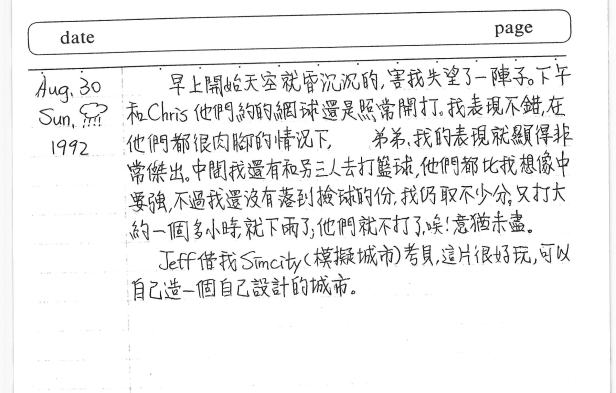 date page
Aug. 30
Sun.
1992
早上開始天空就昏沉沉的,害我失望了一陣子。下午
和Chris他們約的網球還是照常開打。我表現不錯,在
他們都很肉腳的情況下, 弟弟,我的表現就顯得非
常傑出。中間我還有和另三人去打籃球,他們都比我想像中
要強,不過我還沒有落到撿球的份,我仍取不少分。又打大
約一個多小時,就下雨了,他們就不打了,唉!意猶未盡。
Jeff借我Simcity(模擬城市)考貝,這片很好玩,可以
自己造一個自己設計的城市。